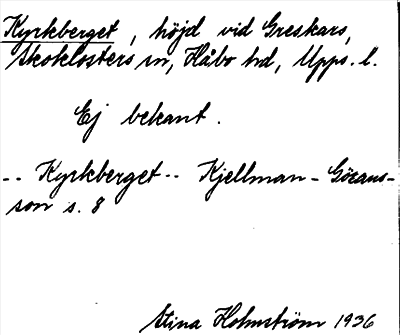 Kyrkberget, höjd vid Greskars,
Skoklosters sn, Håbo hd, Upps. l.
Ej bekant.
-- Kyrkberget -- Kjellman-Görans-
son s. 8
Stina Holmström 1936